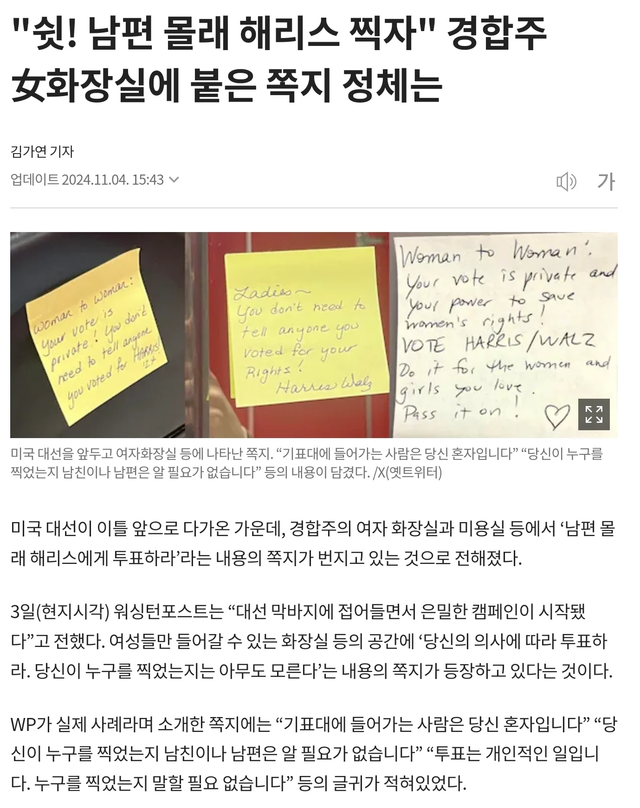 "쉿! 남편 몰래 해리스 찍자" 경합주
女화장실에 붙은 쪽지 정체는
김가연 기자
업데이트 2024.11.04. 15:43
가
Woman to Woman:
Your vote is
private! You don't
need to tell anyone
you voted for HARRIS
Ladies~
You don't need to
tell anyone you
voted for your
Rights!
Harris Walz
Woman to Woman:
Your vote is private and
your power to save
women's rights!
VOTE HARRIS/WALZ
Do it for the women and
girls you love.
Pass it on! ♡
미국 대선을 앞두고 여자화장실 등에 나타난 쪽지. “기표대에 들어가는 사람은 당신 혼자입니다” “당신이 누구를
찍었는지 남친이나 남편은 알 필요가 없습니다” 등의 내용이 담겼다. /X(옛트위터)
미국 대선이 이틀 앞으로 다가온 가운데, 경합주의 여자 화장실과 미용실 등에서 ‘남편 몰
래 해리스에게 투표하라’라는 내용의 쪽지가 번지고 있는 것으로 전해졌다.
3일(현지시각) 워싱턴포스트는 “대선 막바지에 접어들면서 은밀한 캠페인이 시작됐
다”고 전했다. 여성들만 들어갈 수 있는 화장실 등의 공간에 ‘당신의 의사에 따라 투표하
라. 당신이 누구를 찍었는지는 아무도 모른다’는 내용의 쪽지가 등장하고 있다는 것이다.
WP가 실제 사례라며 소개한 쪽지에는 “기표대에 들어가는 사람은 당신 혼자입니다” “당
신이 누구를 찍었는지 남친이나 남편은 알 필요가 없습니다” “투표는 개인적인 일입니
다. 누구를 찍었는지 말할 필요 없습니다” 등의 글귀가 적혀있었다.